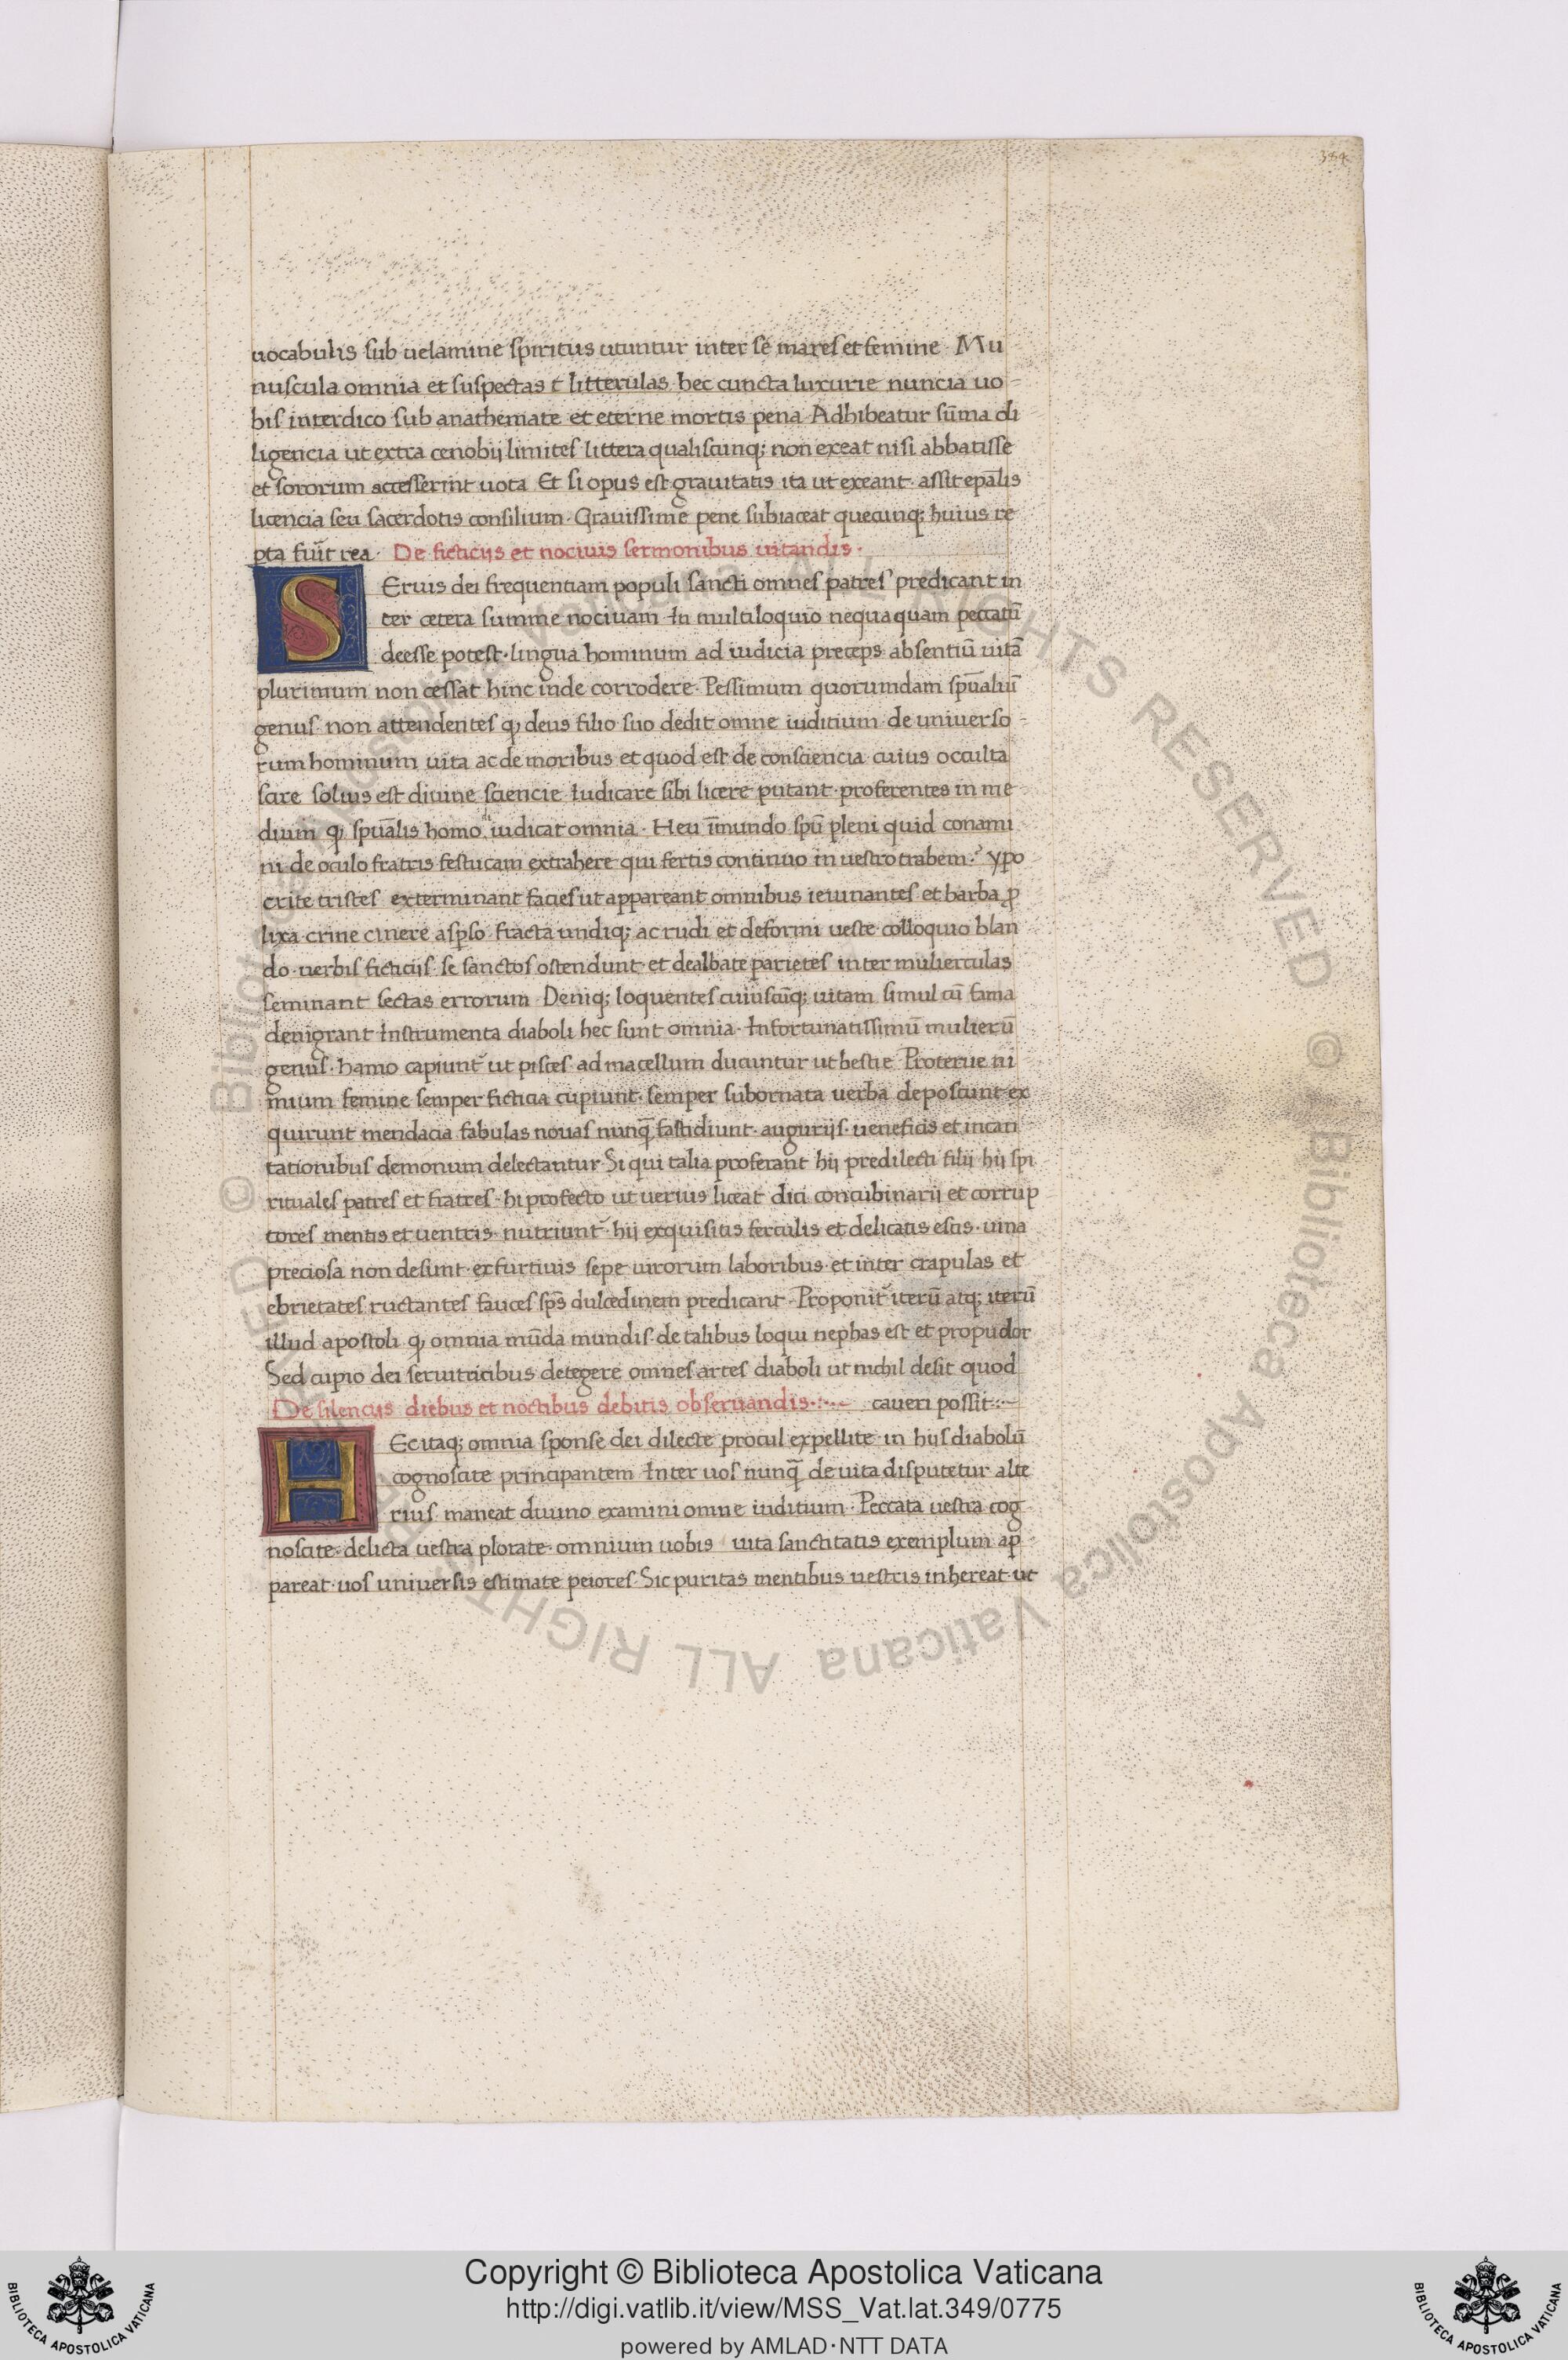 384
uocabulis sub uelamine spiritus utuntur inter se mares et femine · Mu
nuscula omnia et suspectas t litterulas hec cuncta luxurie nuncia uo-
bis interdico sub anathemate et eterne mortis pena · Adhibeatur sūma di
ligencia ut extra cenobij limites littera qualiscunq; non exeat nisi abbatisse
et sororum accesserint uota Et si opus est grauitatis ita ut exeant · assit ep̄alis
licencia seu sacerdotis consilium · Grauissime pene subiaceat quecunq; huius re
pta fuīt rea · De ficticijs et nociuis sermonibus uitandis ·
SEruis dei frequentiam populi sancti omnes patres predicant in
ter cetera summe nociuam In multiloquio nequaquam peccatū
deesse potest · lingua hominum ad iudicia preceps absentiū uitā
plurimum non cessat hinc inde corrodere · Pessimum quorumdam spūaliū
genus non attendentes ꝙ deus filio suo dedit omne iuditium de uniuerso-
rum hominum uita ac de moribus et quod est de consciencia cuius occulta
scire solius est diuine sciencie Iudicare sibi licere putant · proferentes in me
dium ꝙ spūalis homo iudicat omnia · Heu īmundo spū pleni quid conami
ni de oculo fratris festucam extrahere qui fertis continuo in uestro trabem? ypo
crite tristes exterminant facies ut appareant omnibus ieiunantes et barba ꝓ
lixa crine cinere asꝑso fracta undiq; ac rudi et deformi ueste colloquio blan
do · uerbis ficticijs se sanctos ostendunt et dealbate parietes inter mulierculas
seminant sectas errorum Deniq; loquentes cuiuscūq; uitam simul cū fama
denigrant Instrumenta diaboli hec sunt omnia · Infortunatissimū mulierū
genus · hamo capiunt᷑ ut pisces ad macellum ducuntur ut bestie Proterue ni
mium femine semper ficticia cupiunt · semper subornata uerba deposcunt ex
quirunt mendacia fabulas nouas nunq̄ fastidiunt · augurijs · ueneficis et incan
tationibus demonum delectantur · Si qui talia proferant hij predilecti filij hij spi
rituales patres et fratres · hi profecto ut uerius liceat dici concubinarij et corrup
tores mentis et uentris · nutriunt᷑ hij exquisitis ferculis et delicatis escis · uina
preciosa non desunt · ex furtiuis sepe uirorum laboribus · et inter crapulas et
ebrietates ructantes fauces sp̄s dulcedinem predicant · Proponit᷑ iterū atq; iterū
illud apostoli ꝙ omnia mūda mundis · de talibus loqui nephas est et propudor
Sed cupio dei seruitricibus detegere omnes artes diaboli ut nichil desit quod
De silencijs diebus et noctibus debitis obseruandis · caueri possit
HEc itaq; omnia sponse dei dilecte procul expellite · in hijs diabolū
cognoscite principantem Inter uos nunq̄ de uita disputetur alte
rius maneat diuino examini omne iuditium · Peccata uestra cog
noscite · delicta uestra plorate · omnium uobis uita sanctitatis exemplum ap-
pareat · uos uniuersis estimate peiores · Sic puritas mentibus uestris inhereat ut
Copyright © Biblioteca Apostolica Vaticana
http://digi.vatlib.it/view/MSS_Vat.lat.349/0775
powered by AMLAD·NTT DATA